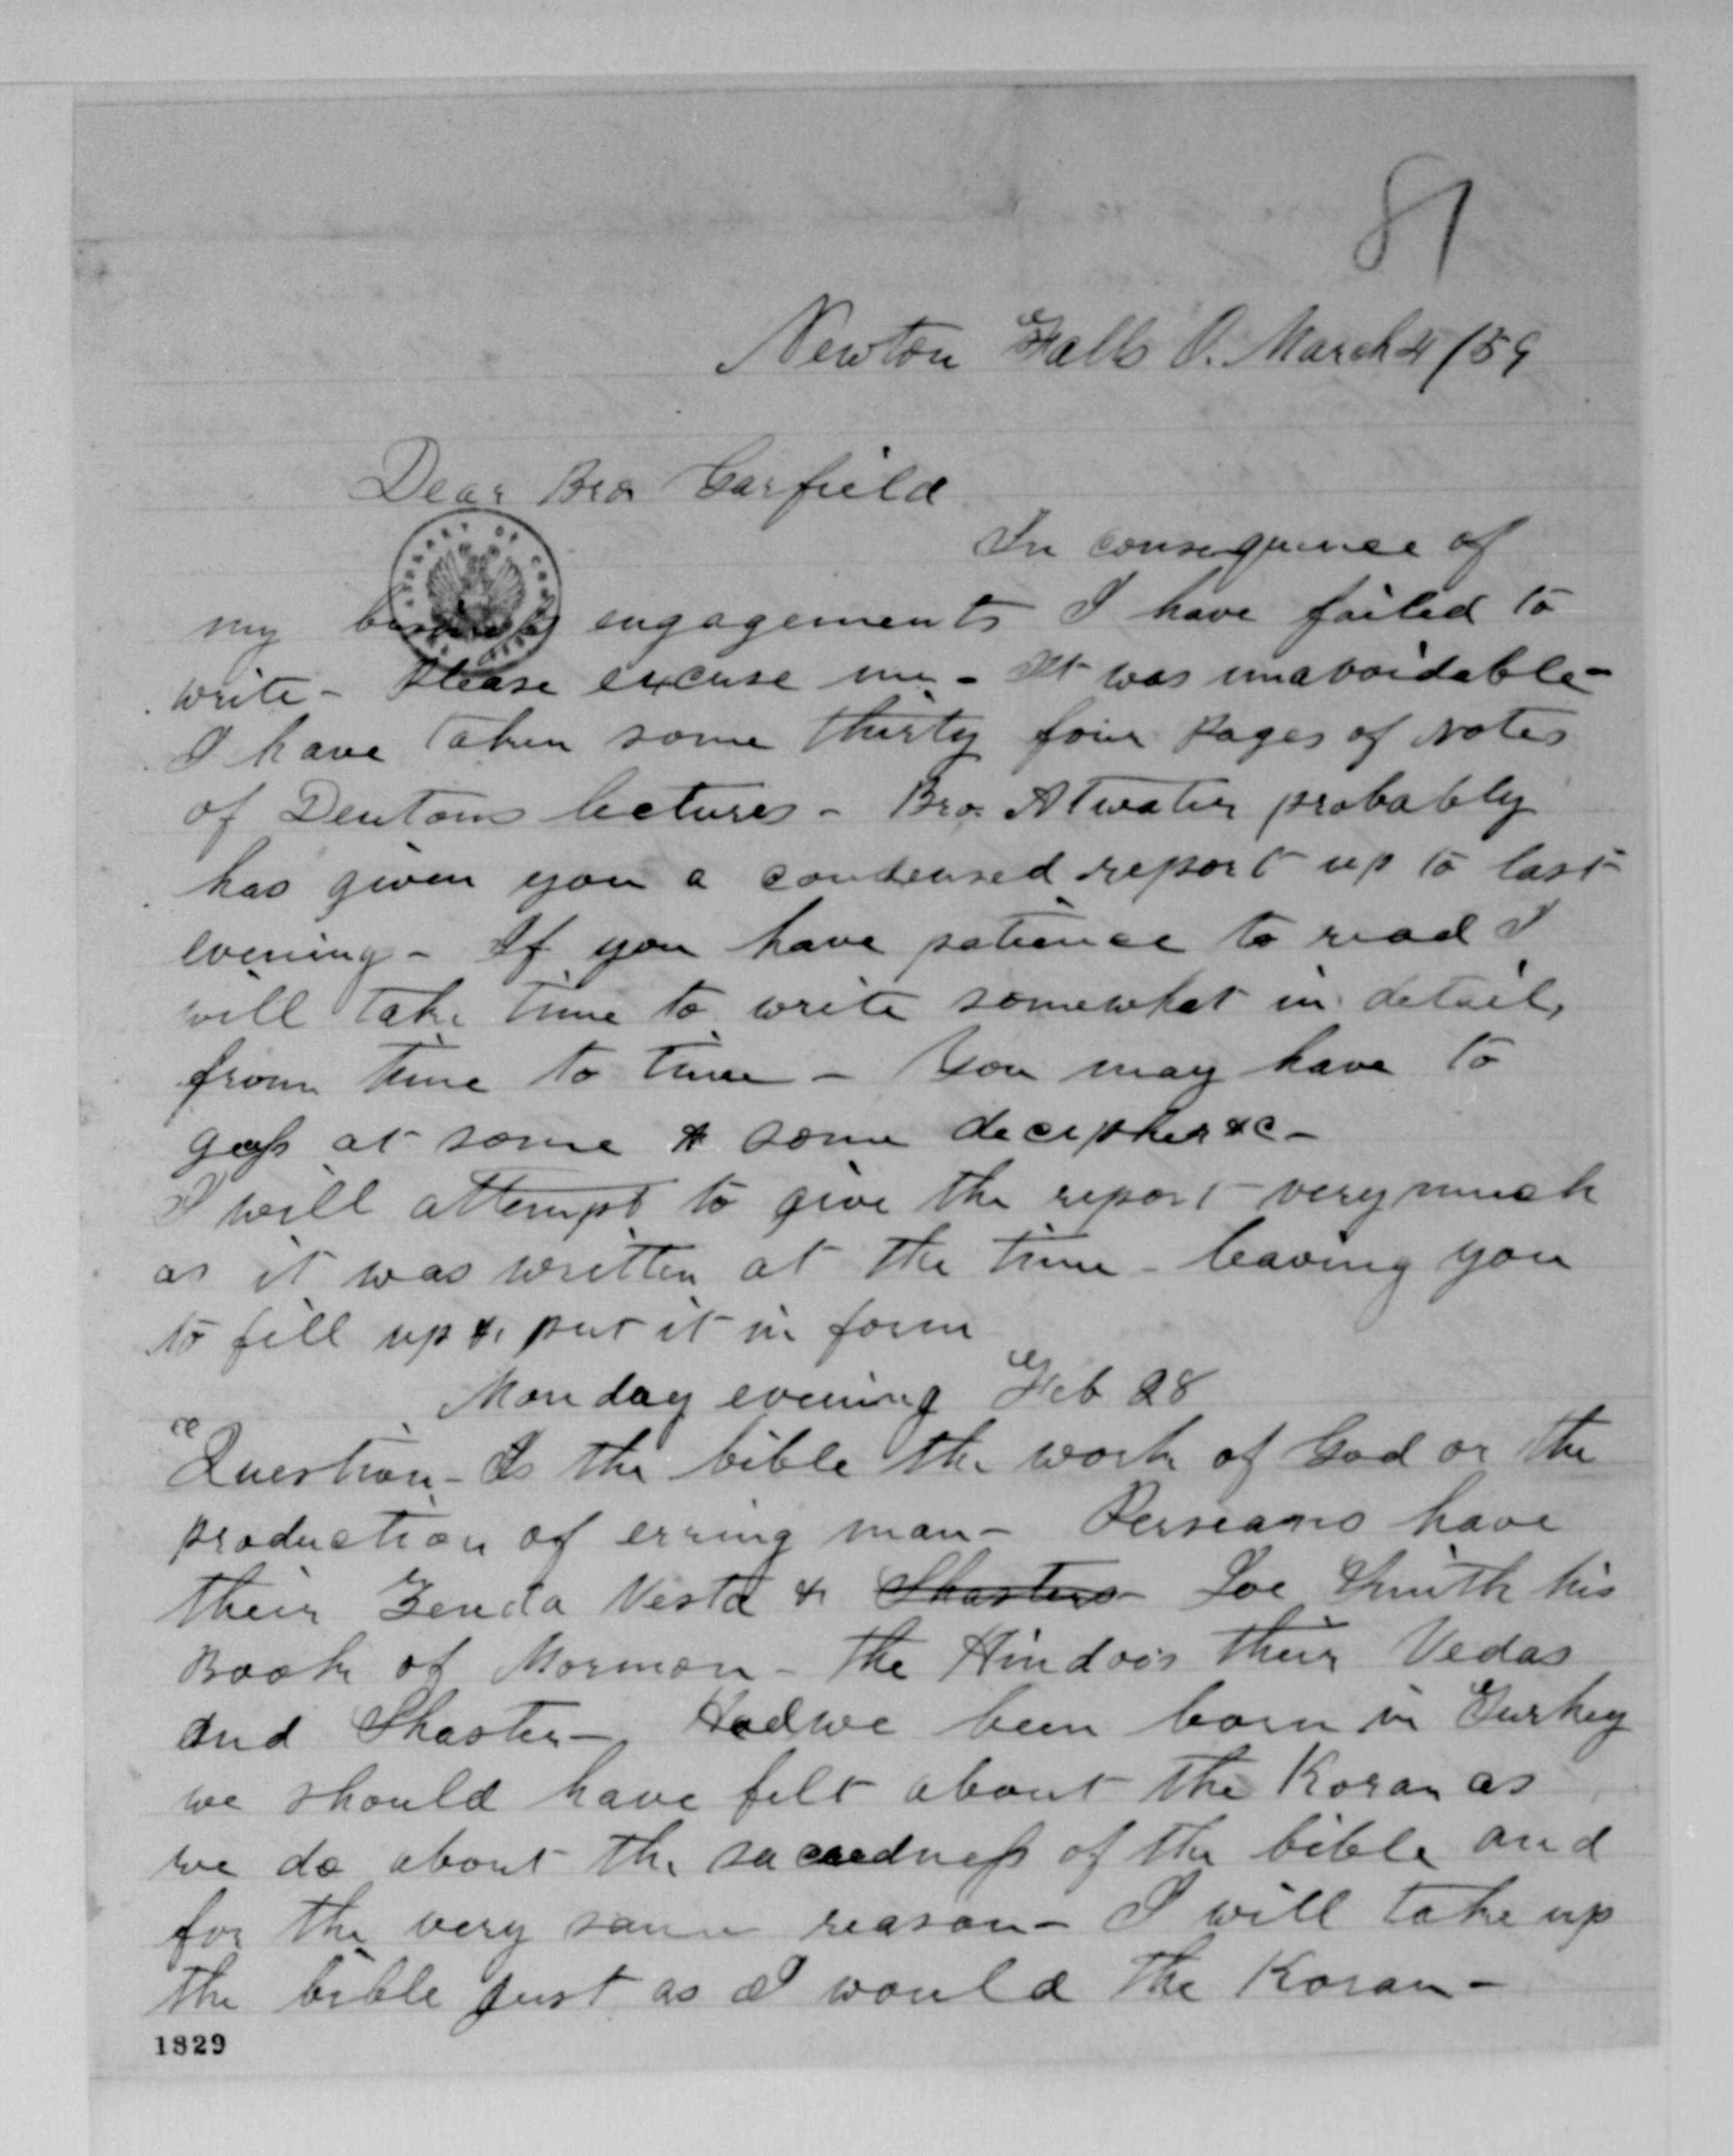 81
Newton Falls O. March 4/59
Dear Bro Garfield
In consequence of
my business engagements I have failed to
write - Please excuse me - It was unavoidable -
I have taken some thirty four Pages of Notes
of Dentons lectures - Bro. Atwater probably
has given you a condensed report up to last
evening - If you have patience to read I
will take time to write somewhat in detail,
from time to time - You may have to
gess at some & some decipher &c -
I will attempt to give the report very much
as it was written at the time - leaving you
to fill up & put it in form
Monday evening Feb 28
"Question - Is the bible the work of God or the
production of erring man - Perseans have
their Zenda Vesta & Shasters - Joe Smith his
Book of Mormon - The Hindoos their Vedas
and Shaster - Had we been born in Turkey
we should have felt about the Koran as
we do about the sacredness of the bible and
for the very same reason - I will take up
the bible just as I would the Koran -
1829